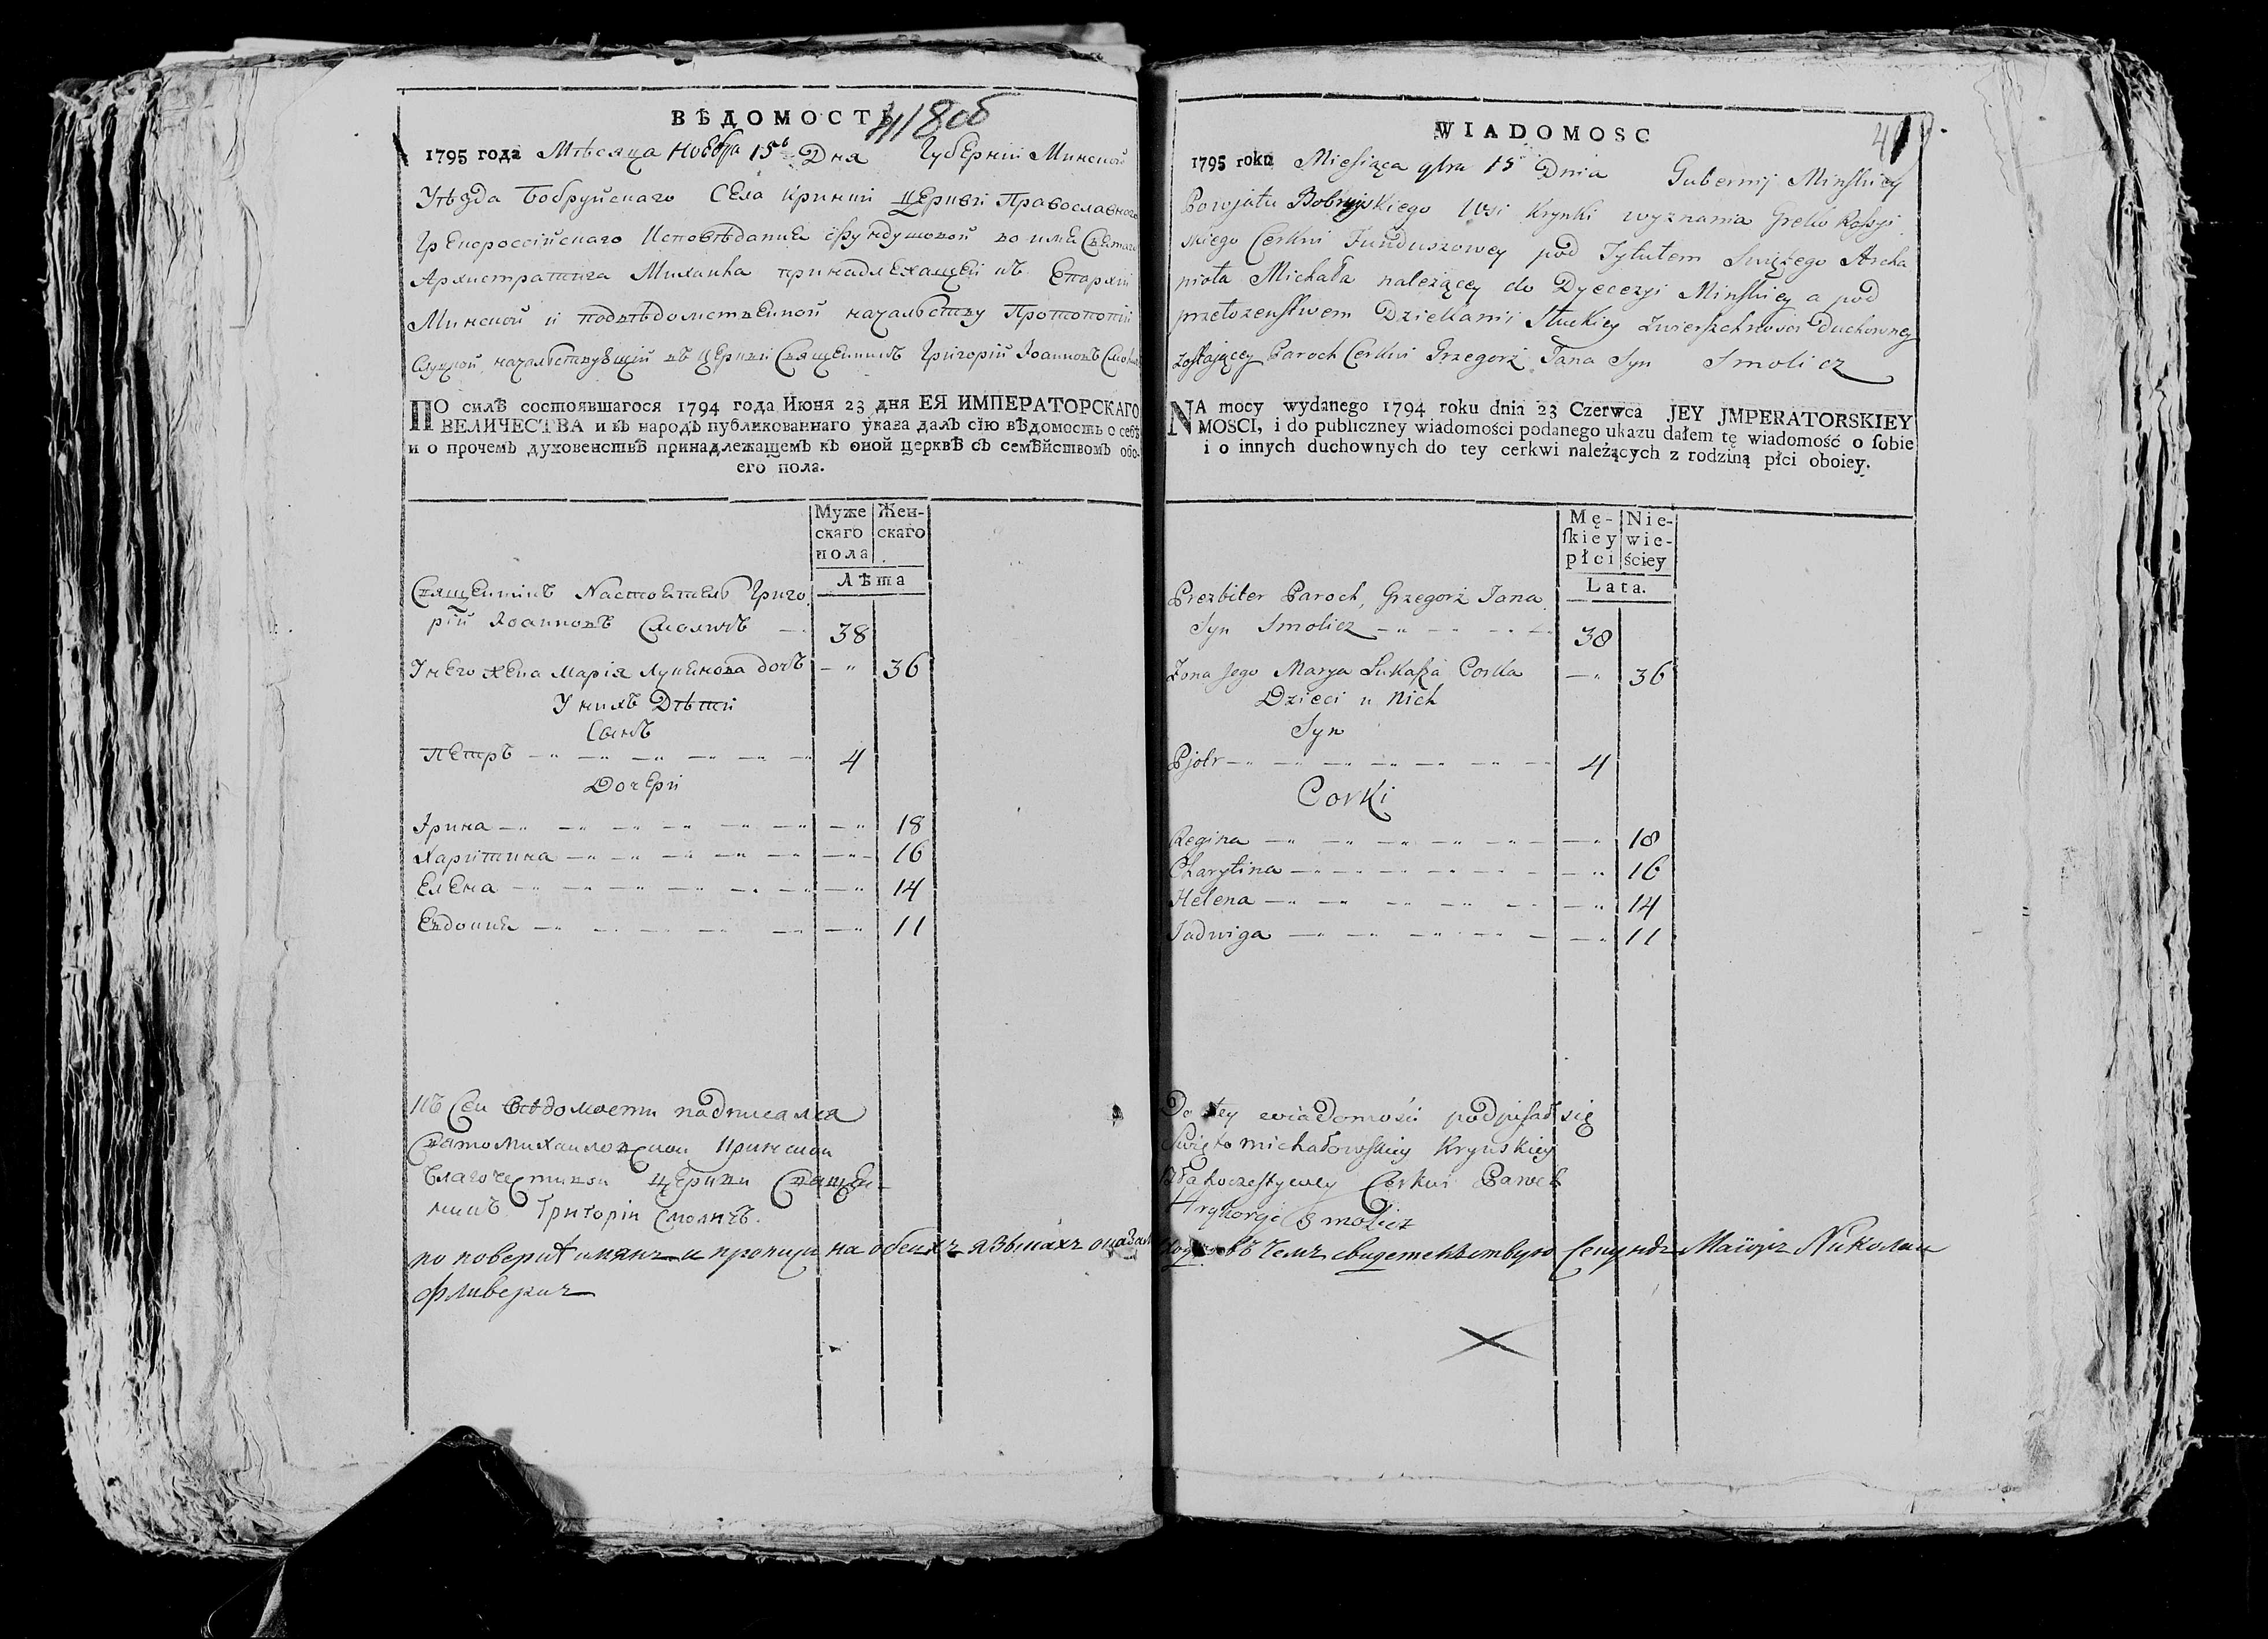 ВѢДОМОСТЬ
418об
1795 года Мѣсяца Ноебра 15 Дня Губерній Минской
Уѣзда Бобруйскаго Села Кринкй Церквй Православнаго
Грекороссійскаго Исповѣданія Фундушовой во имя Святаго
Архистратига Михаила принадлежащей къ Епархій
Минской и подвѣдомственной начальству Протопопій
Слуцкой, начальствующій въ церквй Священникъ Григорій Іоанновъ
ПО силѣ состоявшагося 1794 года Июня 23 дня ЕЯ ИМПЕРАТОРСКАГО
ВЕЛИЧЕСТВА и въ народъ публикованнаго указа далъ сїю вѣдомость о себѣ
и о прочемъ духовенствѣ принадлежащемъ къ оной церквѣ съ семѣйствомъ обо-
его пола.
Муже
скаго
пола
Жен-
скаго
Лѣта
Священникъ Настоятель Григо
рій Іоанновъ Смоличъ 38
У него жена Марія Лукинова дочь 36
У нихъ Дѣти
Сынъ
Петръ 4
Дочери
Ірина 18
Харитина 16
Елена 14
Евдокия 11
Къ Сеи Вѣдомости подписался
Святомихаиловской Кринской
благочестивои церкви Священ-
никъ Григоріи Смоличъ.
по поверке имянъ и протчи на обеихъ языкахъ
WIADOMOSC
1795 roku Miesiąca 9bra 15 Dnia Gubernij Minskiey
Powjatu Bobruyskiego Wsi Krynki wyznania Greko Rossyi
skiego Cerkwi Funduszowey pod Tytułem Swiętego Archa
nioła Michała należącey do Dyecezyi Minskiey a pod
przełozenstwem Dziekanii Słuckiey Zwierzchnosci Duchowney
zostającey Paroch Cerkwi Grzegorz Jana Syn Smolicz
NA mocy wydanego 1794 roku dnia 23 Czerwca JEY JMPERATORSKIEY
MOSCI, i do publiczney wiadomości podanego ukazu dałem tę wiadomość o sobie
i o innych duchownych do tey cerkwi należących z rodziną płci oboiey.
Mę-
skiey
płci
Nie-
wie-
ściey
Lata.
Prezbiter Paroch, Grzegorz Jana
Syn Smolicz 38
Zona Jego Marya Łukasza Corka 36
Dzieci u Nich
Syn
Pjotr 4
Corki
Regina 18
Charytina 16
Helena 14
Jadwiga 11
Do tey wiadomości podpisał się
Swięto michałowskiey Krynskiey
Błahoczestywey Cerkwi Paroch
Hryhorij Smolicz
въ чемъ свидетельствую Секундъ Маиоръ Николаи